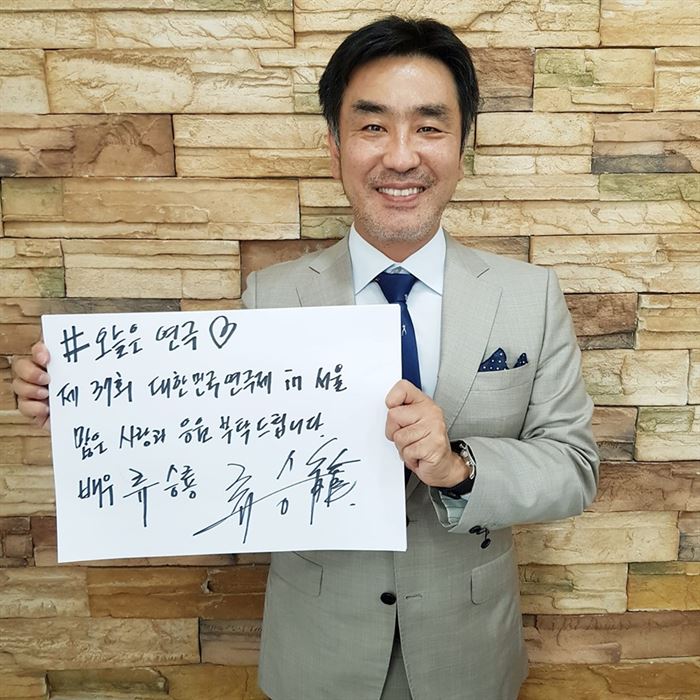 #오늘은 연극♡
제 37회 대한민국연극제 in 서울
많은 사랑과 응원 부탁드립니다.
배우 류승룡 류승龍.